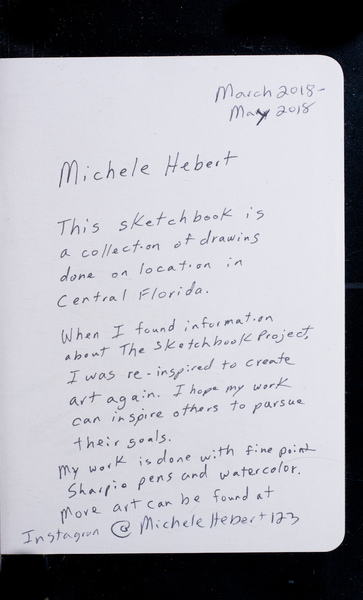 March 2018-
May 2018
Michele Hebert
This sketchbook is
a collection of drawing
done on location in
Central Florida.
When I found information
about The Sketchbook Project,
I was re-inspired to create
art again. I hope my work
can inspire others to pursue
their goals.
My work is done with fine point
Sharpie pens and watercolor.
More art can be found at
Instagram @ Michele Hebert 123